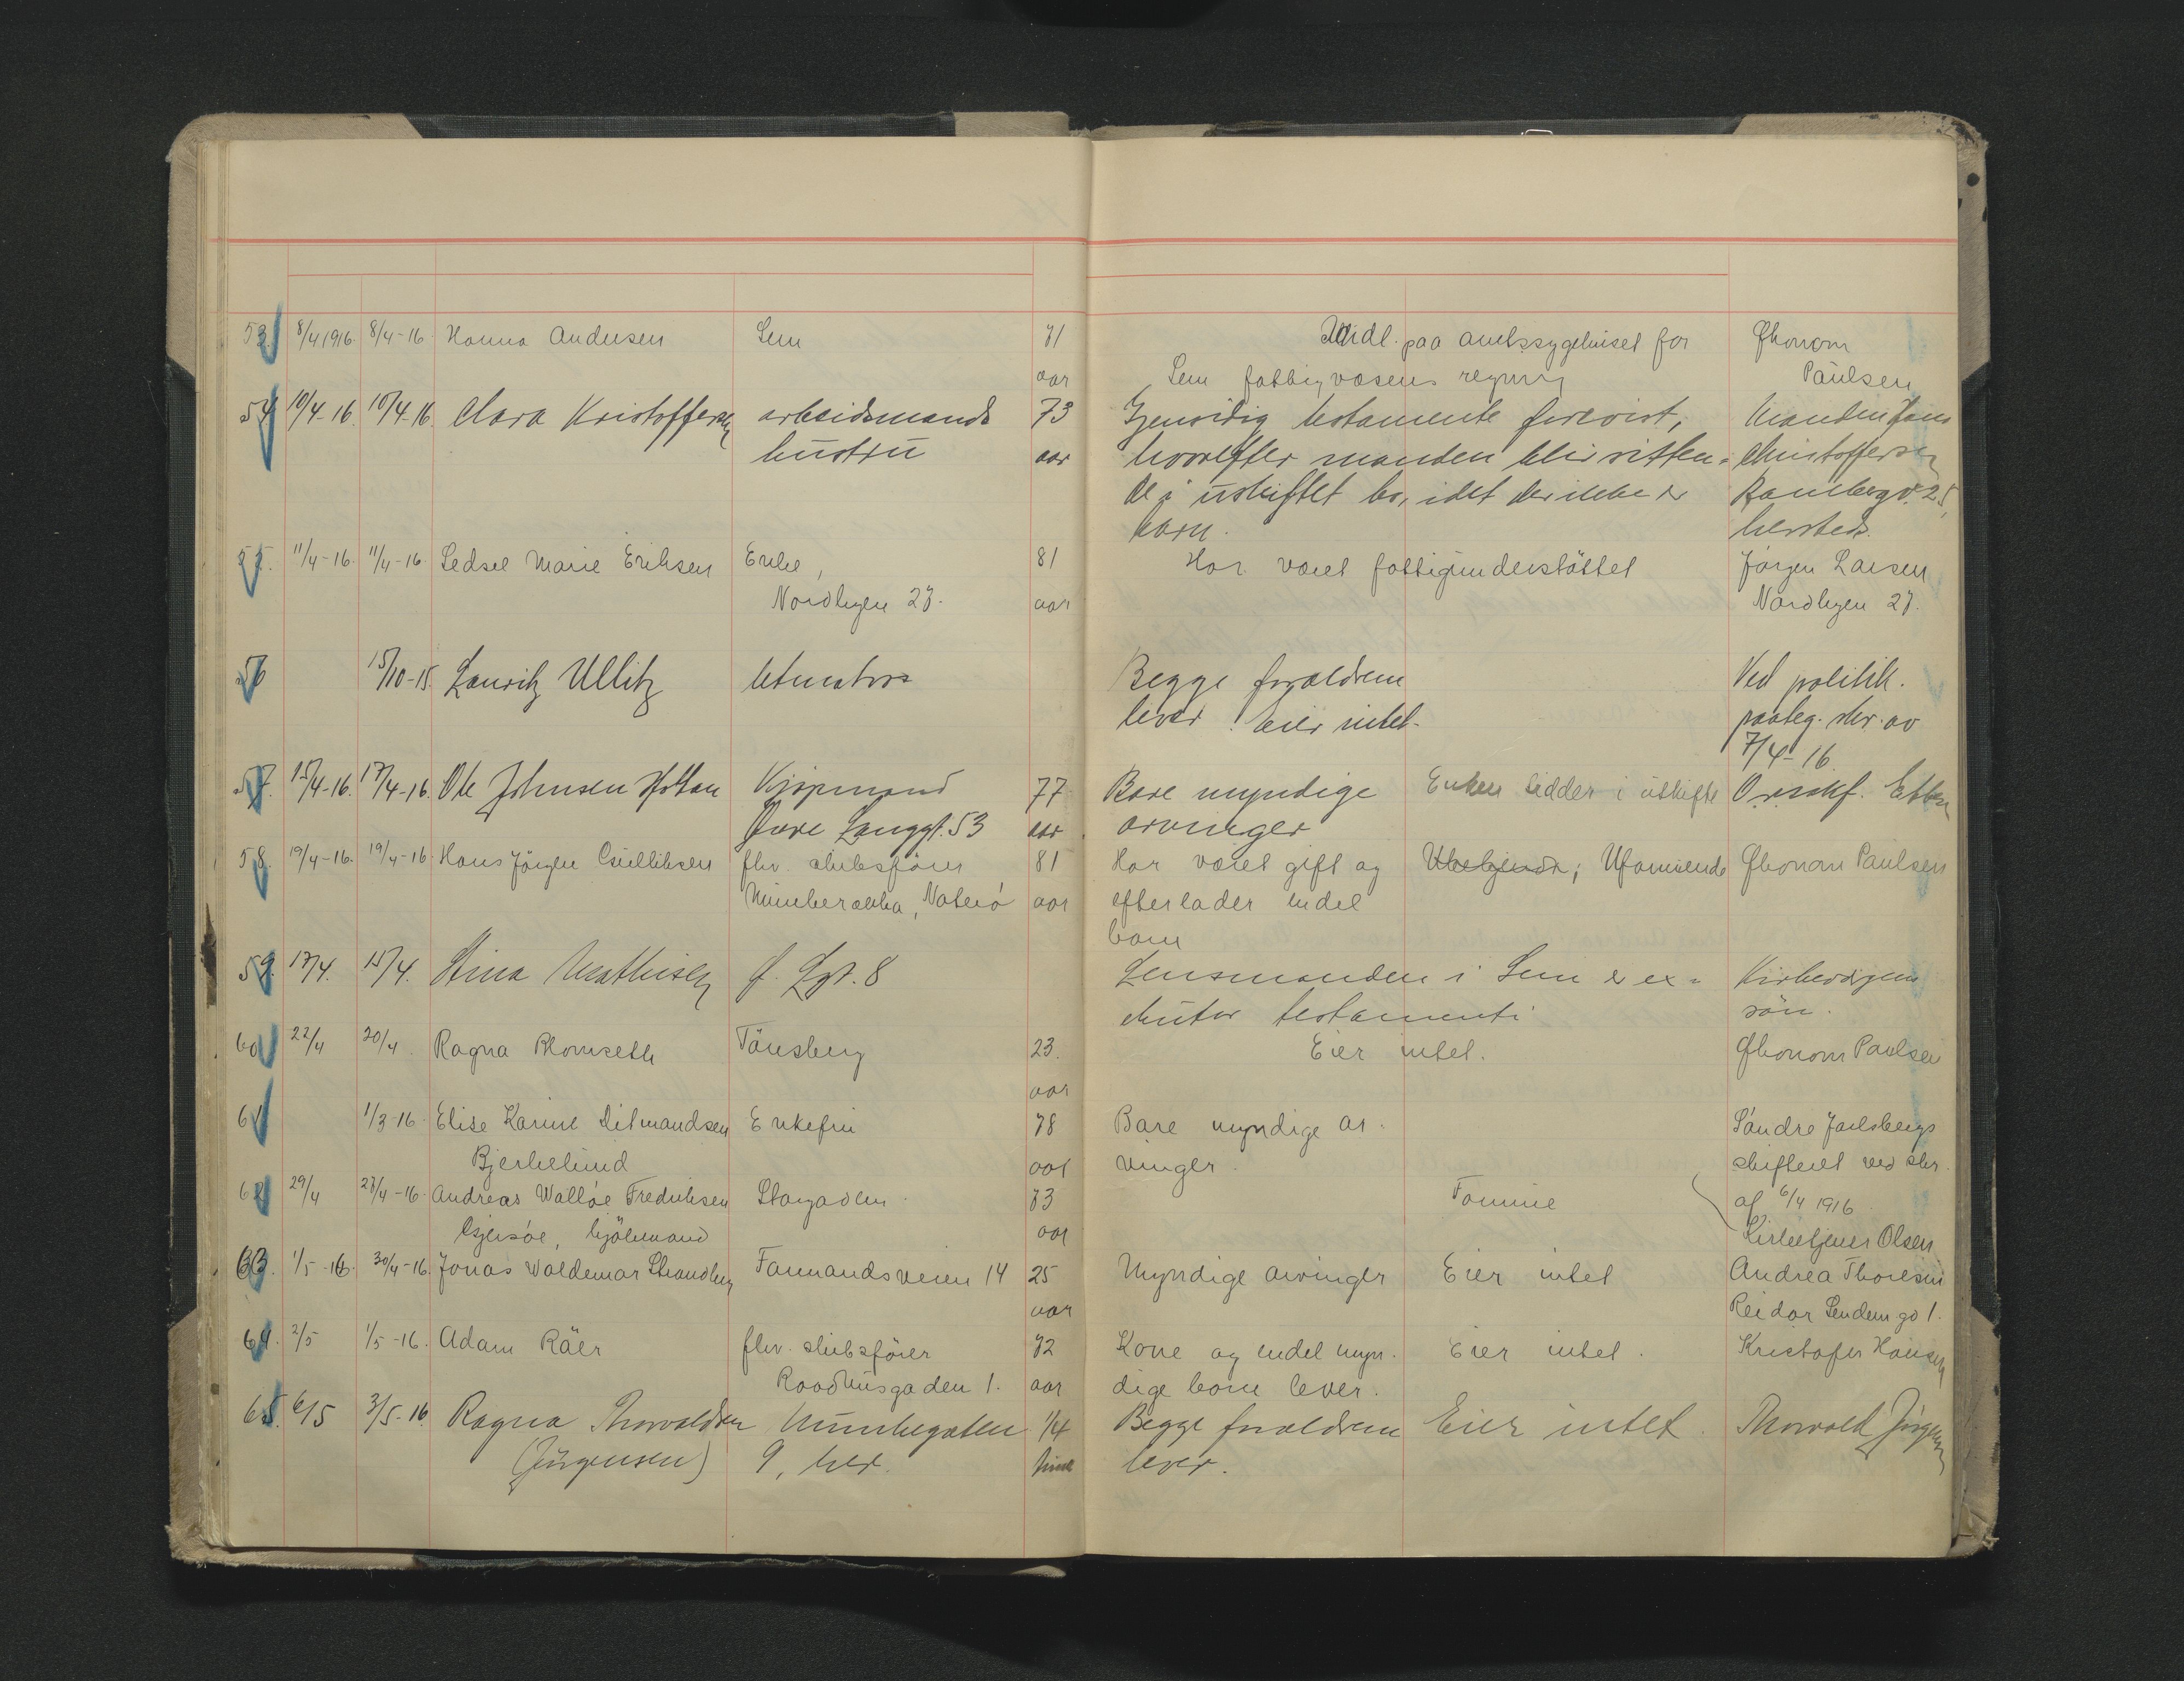 53. 8/4 1916. 8/4-16 Hanna Andersen Sem 71 Indl. paa amtssygehuset for Økonom
aar Sem fattigvæsens regning Paulsen
54 10/4-16. 10/4-16. Clara Kristoffersen arbeidsmands 73 Gjensidig testamente forevist, Manden Hans
hustru aar hvorefter manden blir sitten- Christoffersen
de i uskiftet bo, idet der ikke er Rambergv. 25,
barn. hersteds.
55. 11/4-16. 11/4-16. Sedsel Marie Eriksen Enke, 81 Har været fattigunderstøttet Jørgen Larsen
Nordbyen 27. aar Nordbyen 27.
56 15/10-15. Lauritz Ullitz letmatros Begge forældrene Ved politik.
lever. Eier intet. paateg. skr. av
7/4-16.
57. 15/4-16. 17/4-16. Ole Johnsen Hottan Kjøpmand 77 Bare myndige Enken sidder i uskifte O.r.sakf.
Øvre Langgt. 53 aar arvinger
58. 19/4-16. 19/4-16. Hans Jørgen flv. skibsfører 81 Har været gift og Ubekjendt; Uformuende Økonom Paulsen
Nøterø aar efterlader endel
barn
59. 17/4. 15/4. Stina Mathisen f. Lgt. 8 Lensmanden i Sem er ex- Kirkevergens
ekutor testamenti søn.
60 22/4 20/4. Ragna Blomseth Tønsberg 23. Eier intet. Økonom Paulsen
aar
61 1/3-16. Elise Karine Ditmandsen Enkefru 78 Bare myndige ar- Søndre Jarlsbergs
Bjerkelund aar vinger. skifteret ved skr.
62 29/4 27/4-16. Andreas Walløe Fredriksen Storgaden. 73 Formue af 6/4 1916
Gjersøe, kjøbmand aar Kirketjener Olsen
63. 1/5-16. 30/4-16. Jonas Waldemar Strandberg Farmandsveien 14 25 Myndige arvinger Eier intet Andrea Thoresen
aar Reidar Sendems gd 1.
64. 2/5 1/5-16. Adam Räer flv. skibsfører 72 Kone og endel myn- Eier intet. Kristofer Hansen
Raadhusgaden 1. aar dige barn lever.
65. 6/5 3/5-16. Ragna Thorvaldsen Munkegaten 1/4 Begge forældrene Eier intet. Thorvald Jørgensen
(Jørgensen) 9, her. time lever.